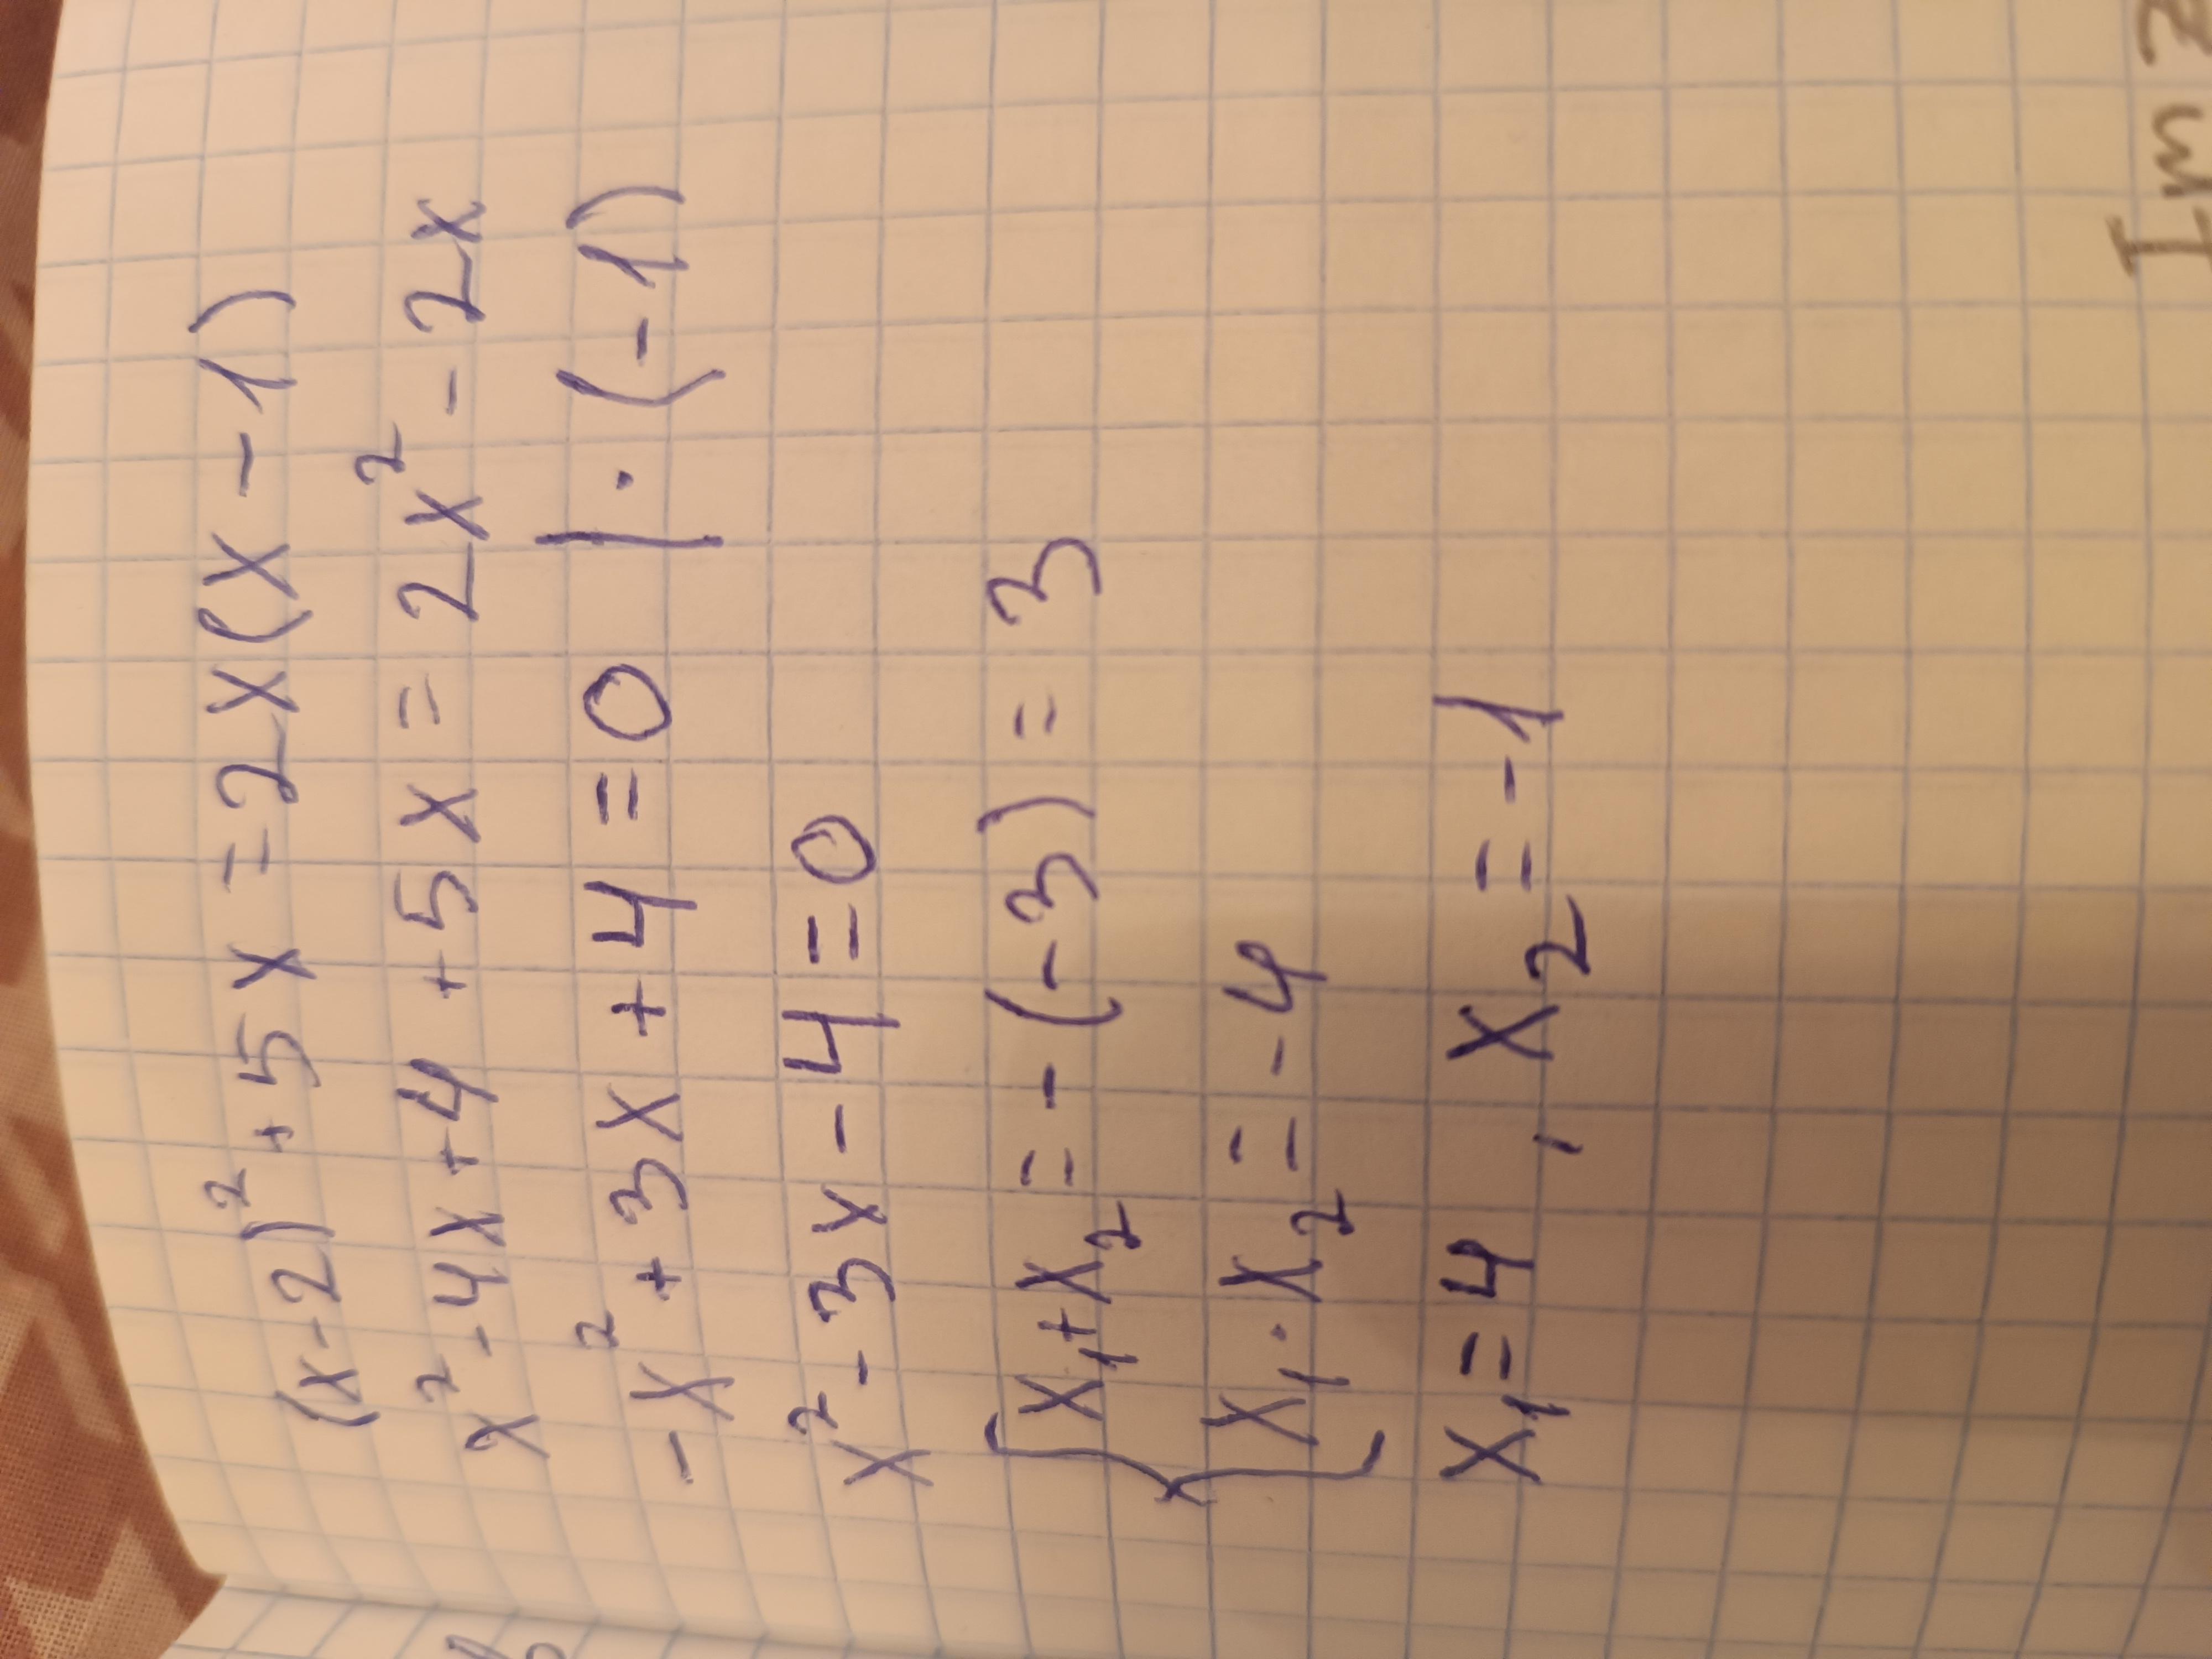 (x-2)² + 5x = 2x(x-1)
x² - 4x + 4 + 5x = 2x² - 2x
-x² + 3x + 4 = 0 | · (-1)
x² - 3x - 4 = 0
{ x₁ + x₂ = -(-3) = 3
x₁ · x₂ = -4
x₁ = 4, x₂ = -1